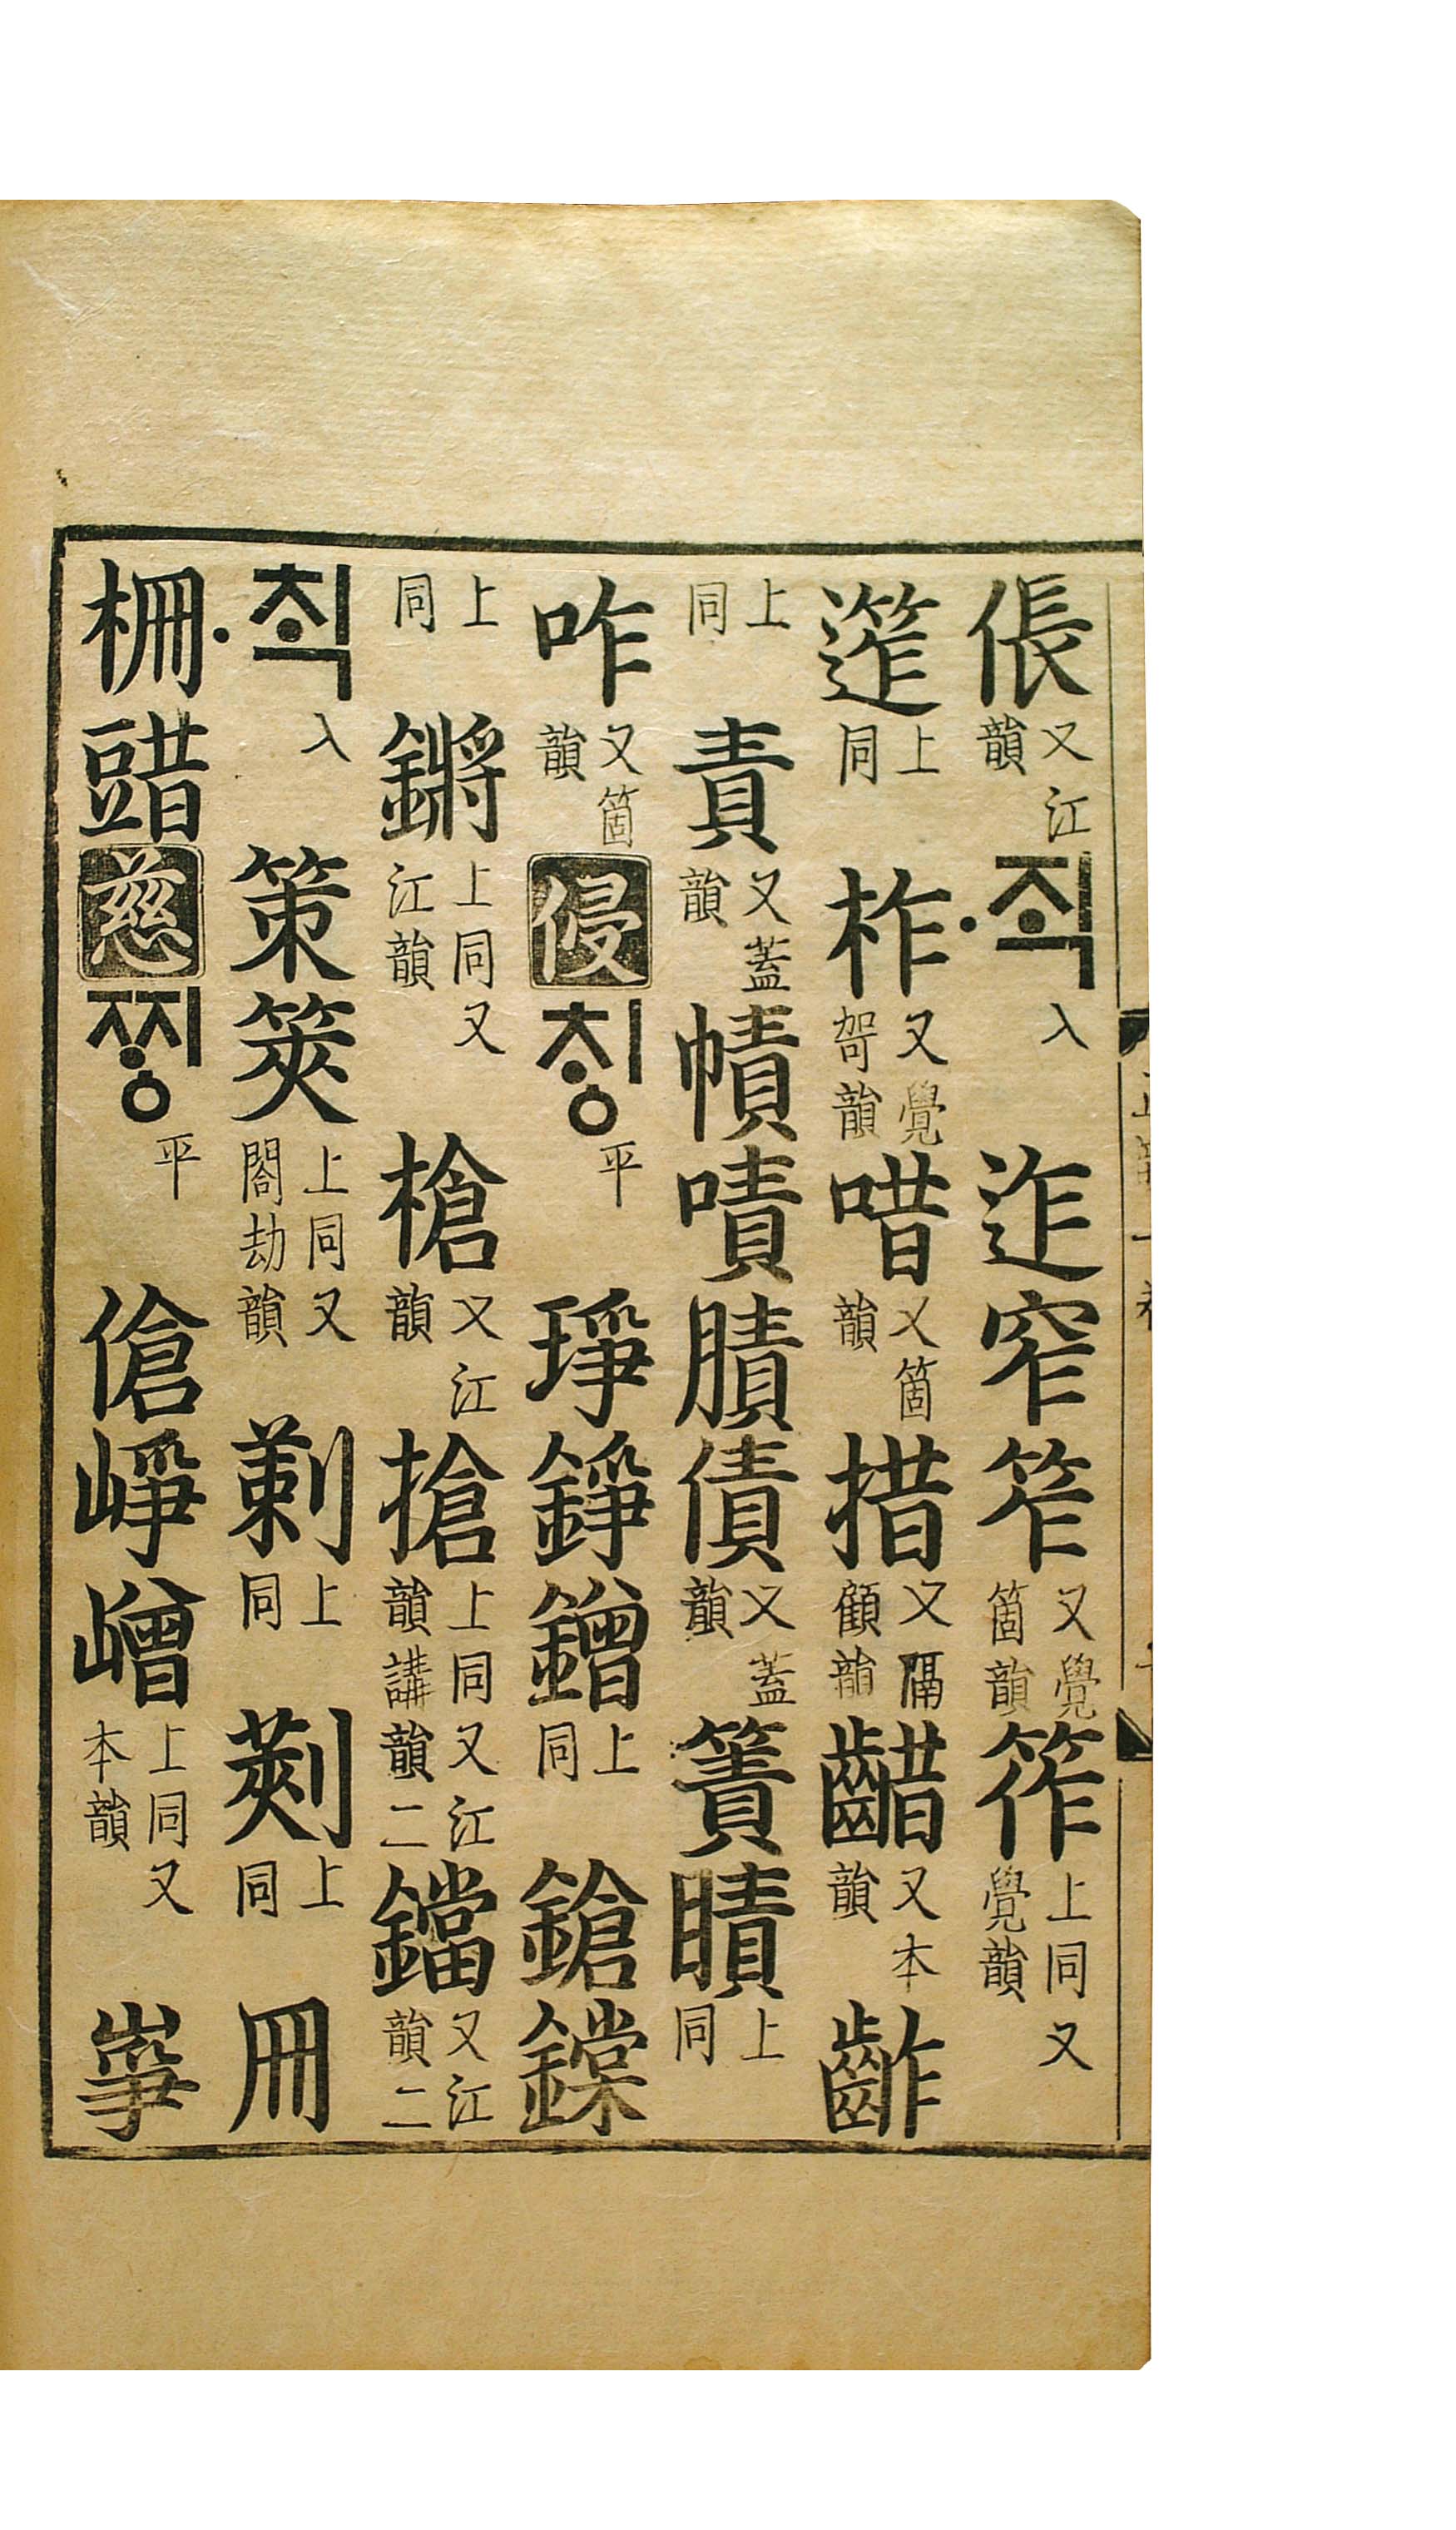 倀又江韻ᄌᆡᆨ入迮窄笮又覺箇韻筰上同又覺韻
簎上同柞又覺哿韻唶又箇韻措又隔顧韻齰又本韻齚
上同責又蓋韻幘嘖膭債又蓋韻簀瞔上同
咋又箇韻侵ᄎᆡᆼ平琤錚鏳上同鎗鏿
上同鏘上同又江韻槍又江韻搶上同又江韻講韻二鐺又江韻二
ᄎᆡᆨ入策筴上同又閤劫韻莿上同㓨上同冊
柵䜺慈ᄍᆡᆼ平傖崢嶒上同又本韻崝